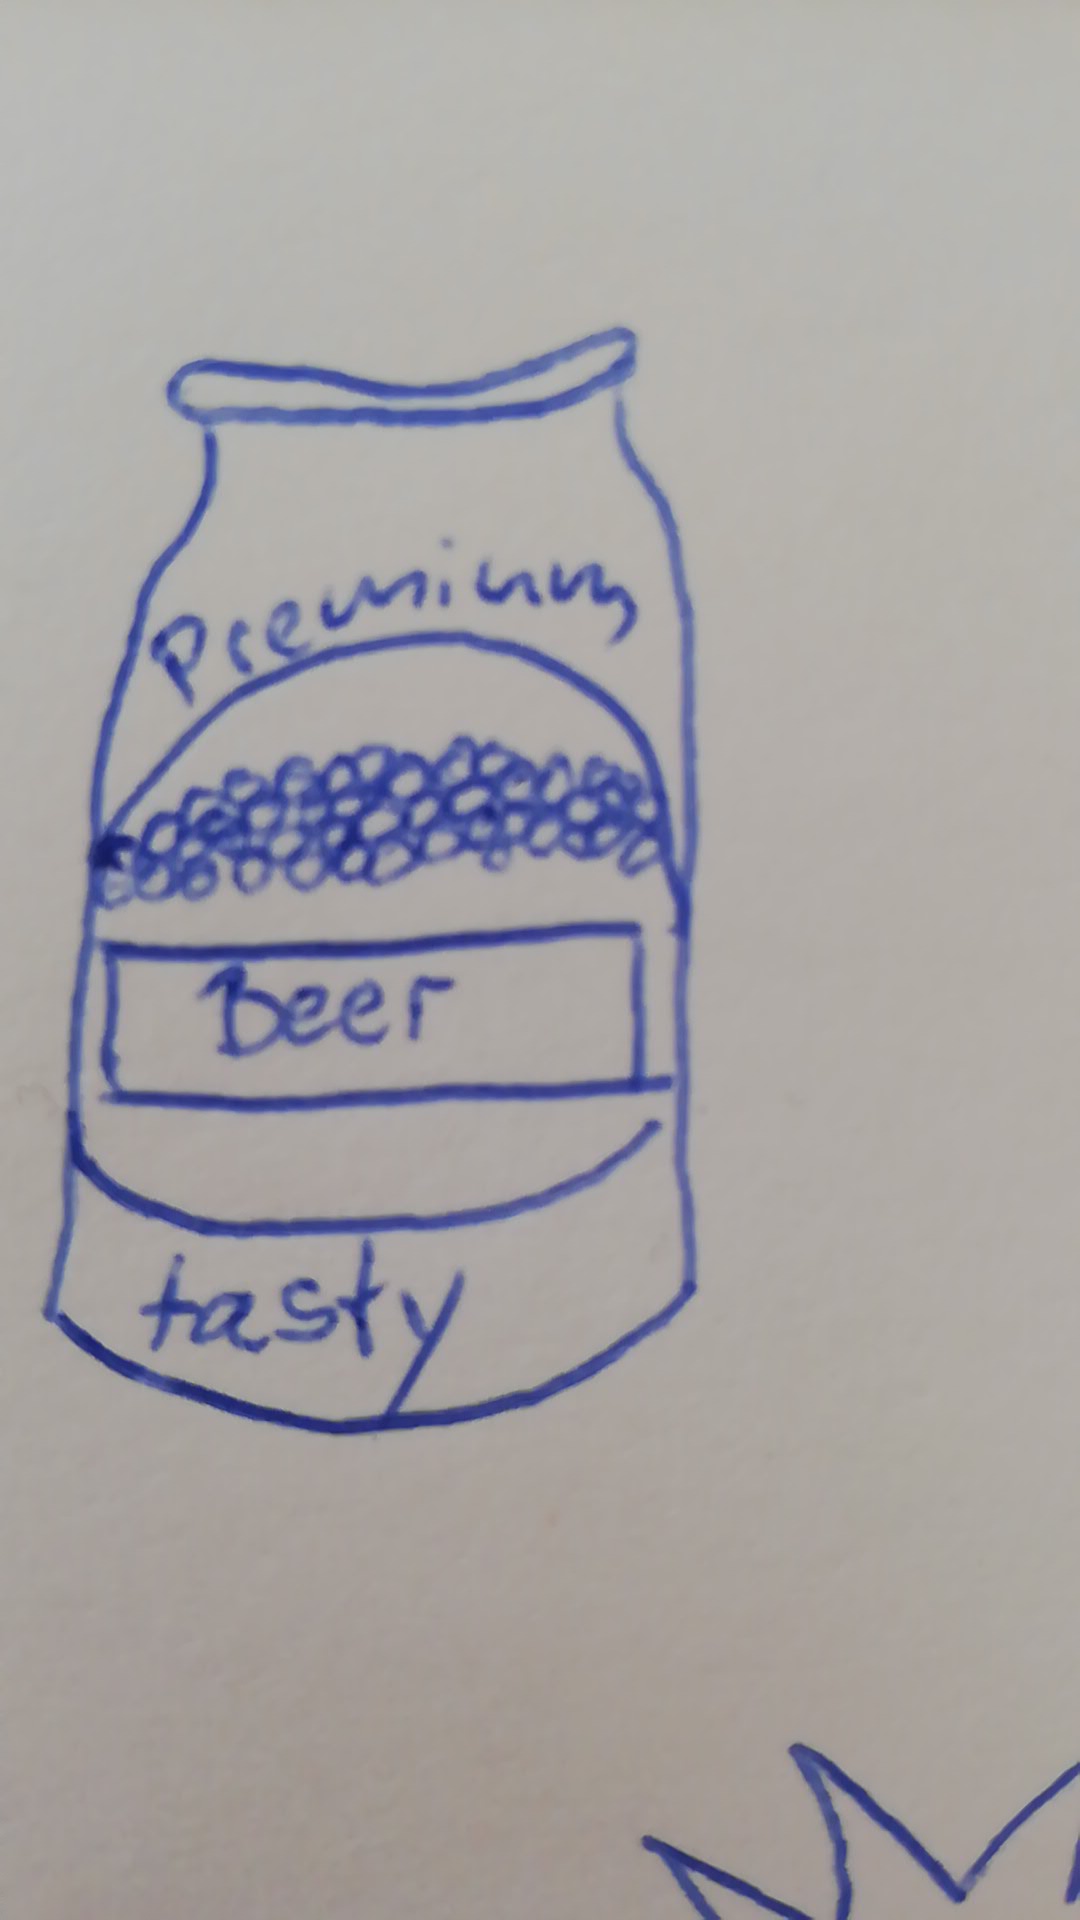 Premium
Beer
tasty